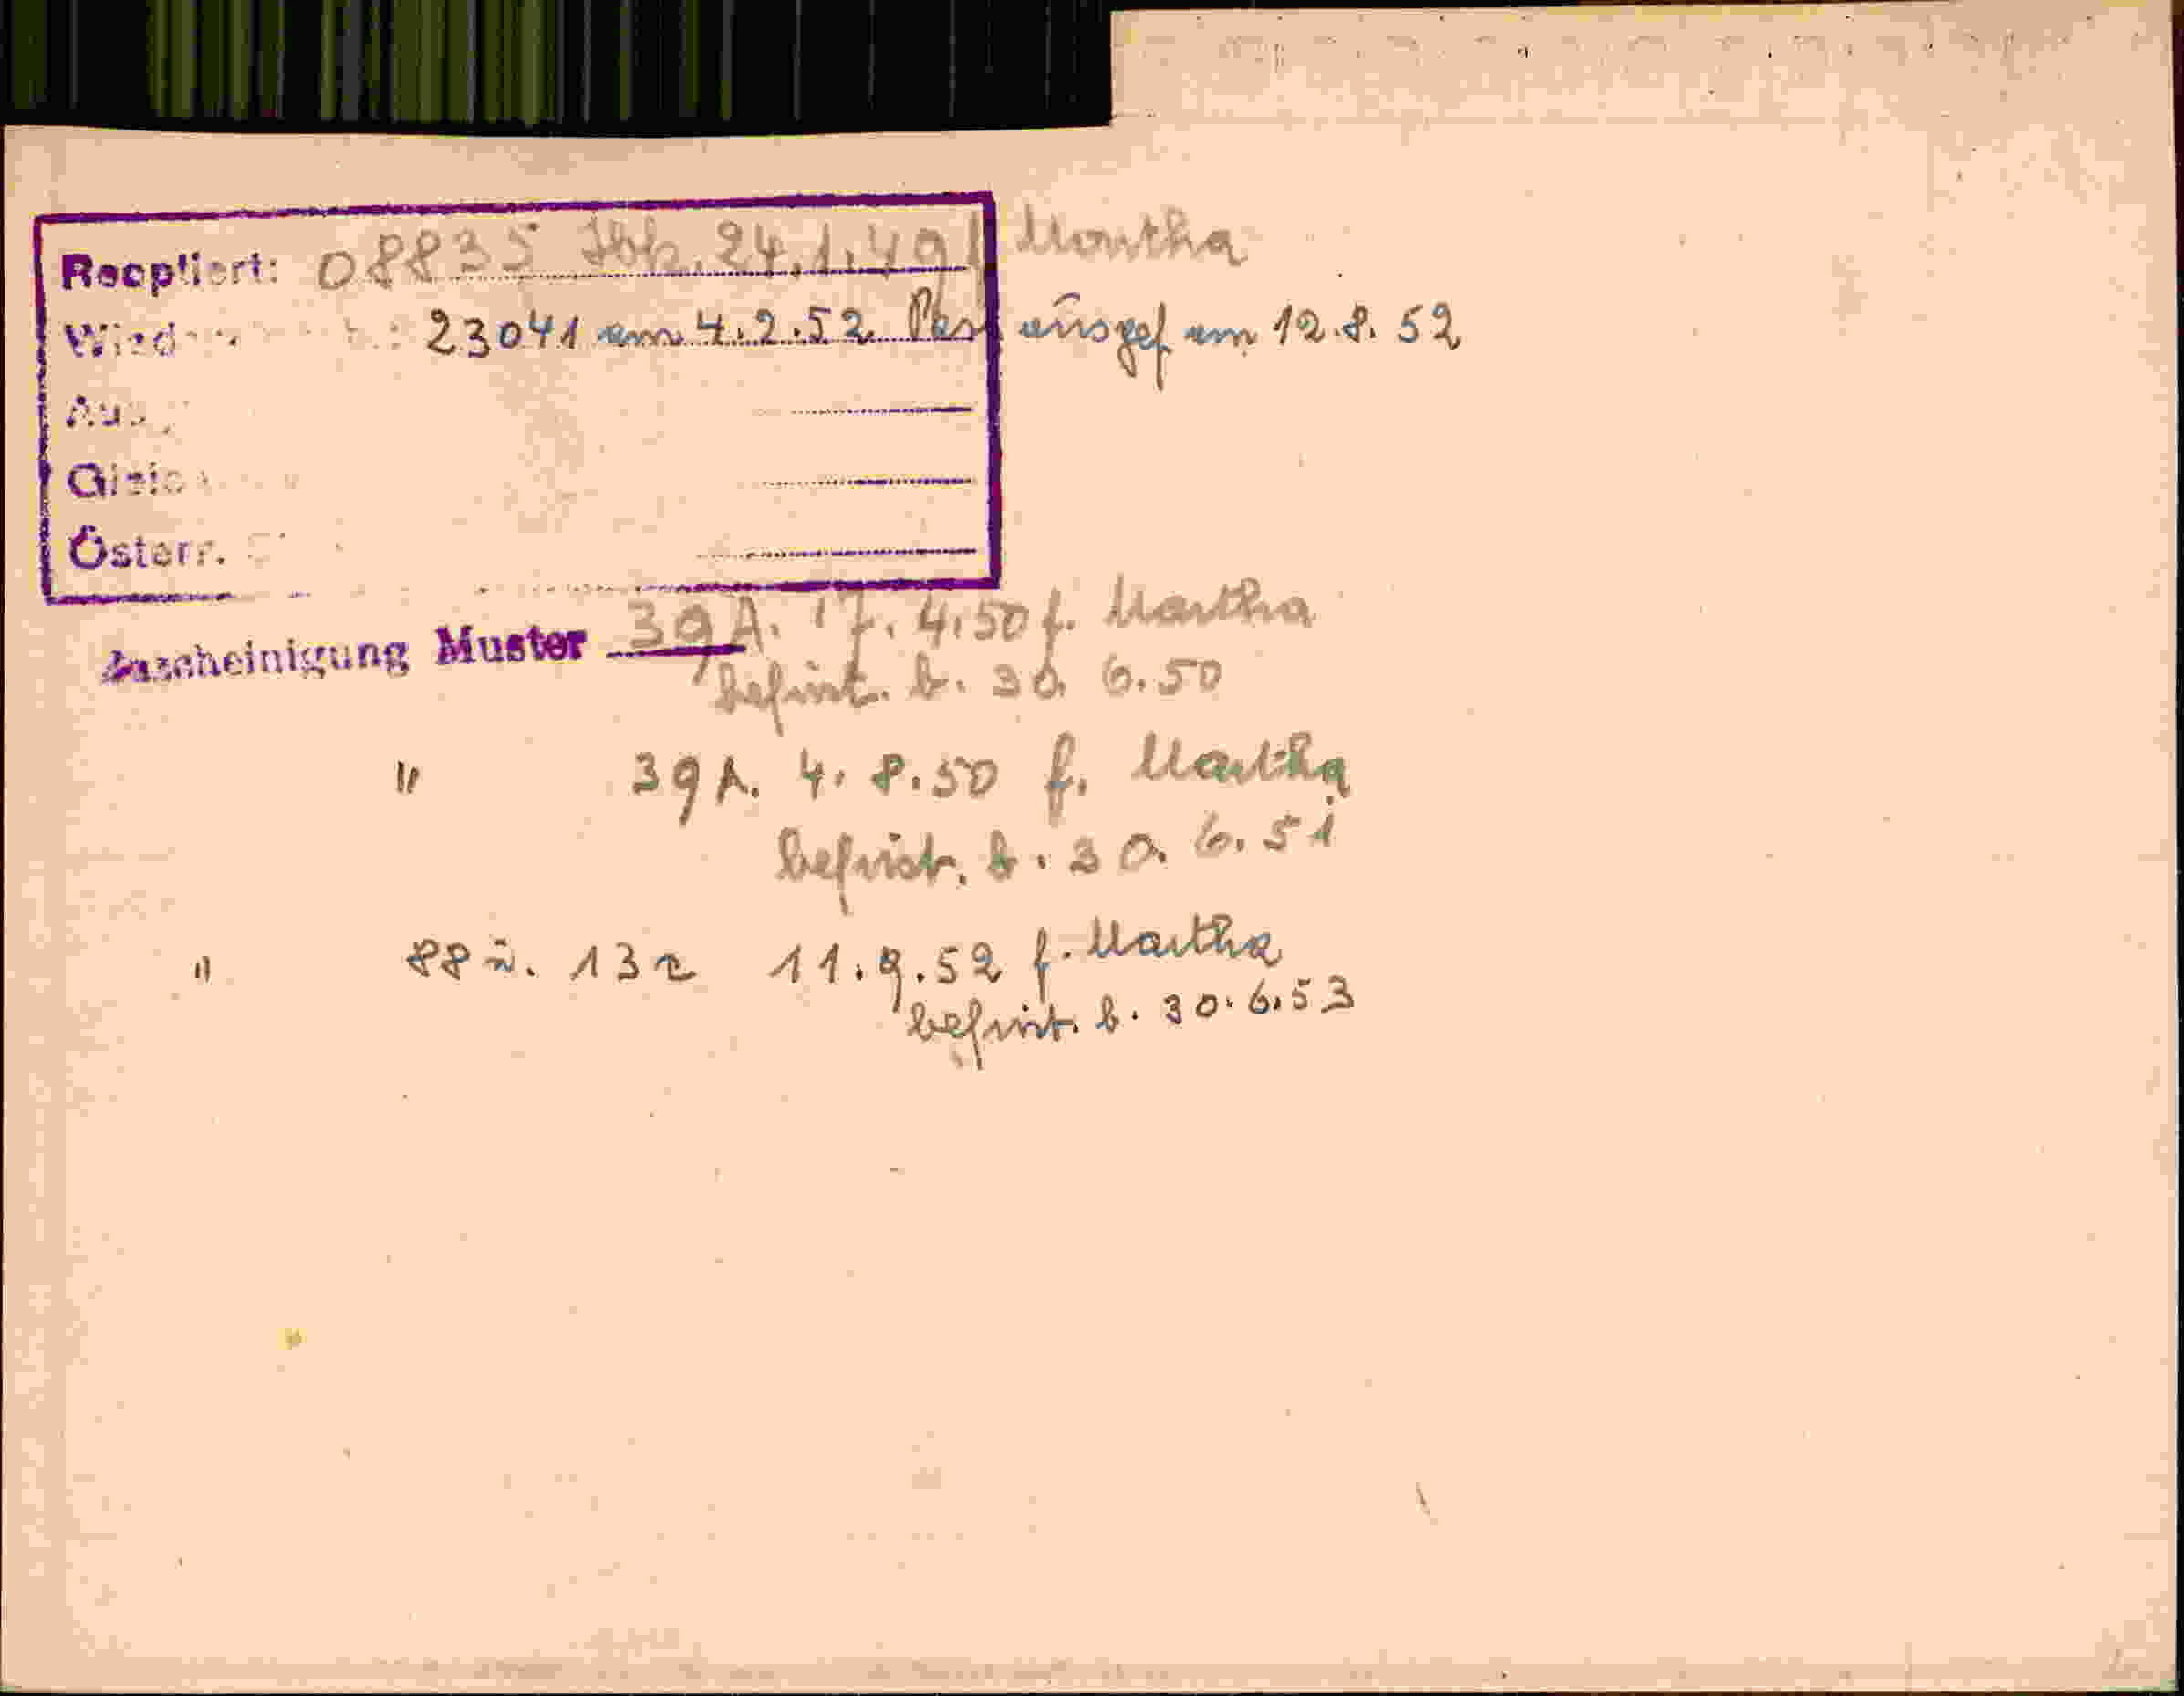 Reoptiert: 08835 Ibk. 24.1.49 f Martha
23041 am 4.2.52 Pass ausgef am 12.8.52
Österr.
Bescheinigung Muster 39 A. 17.4.50 f. Martha
befrist. b. 30.6.50
" 39 A. 4.8.50 f. Martha
befrist. b. 30.6.51
" 88 u. 132 11.9.52 f. Martha
befrist. b. 30.6.53